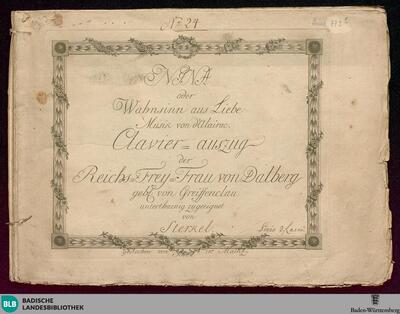 No 24
NINA
oder
Wahnsinn aus Liebe
Musik von d'Alairac
Clavier=auszug
der
Reichs=Frey=Frau von Dalberg
geb. von Greiffenclau
unterthænig zugeeignet
von
Sterkel
gestochen von
in Mainz
BLB
BADISCHE
LANDESBIBLIOTHEK
Baden-Württemberg